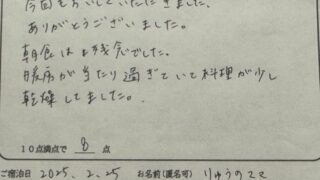 今回もお いしくいただきました。
ありがとうございました。
朝食は残念でした。
暖房が当たり過ぎていて料理が少し
乾燥してました。
10点満点で 8 点
ご宿泊日 2025.2.25 お名前(匿名可) りゅうのママ